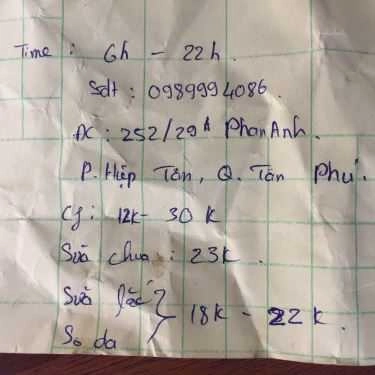 Time : 6h - 22h.
Sdt : 0989994086.
ĐC : 252/29A Phan Anh.
P. Hiệp Tân, Q. Tân Phú.
Cf : 12k - 30k
Sữa chua : 23k.
Sữa lắc } 18k - 22k.
Sođa